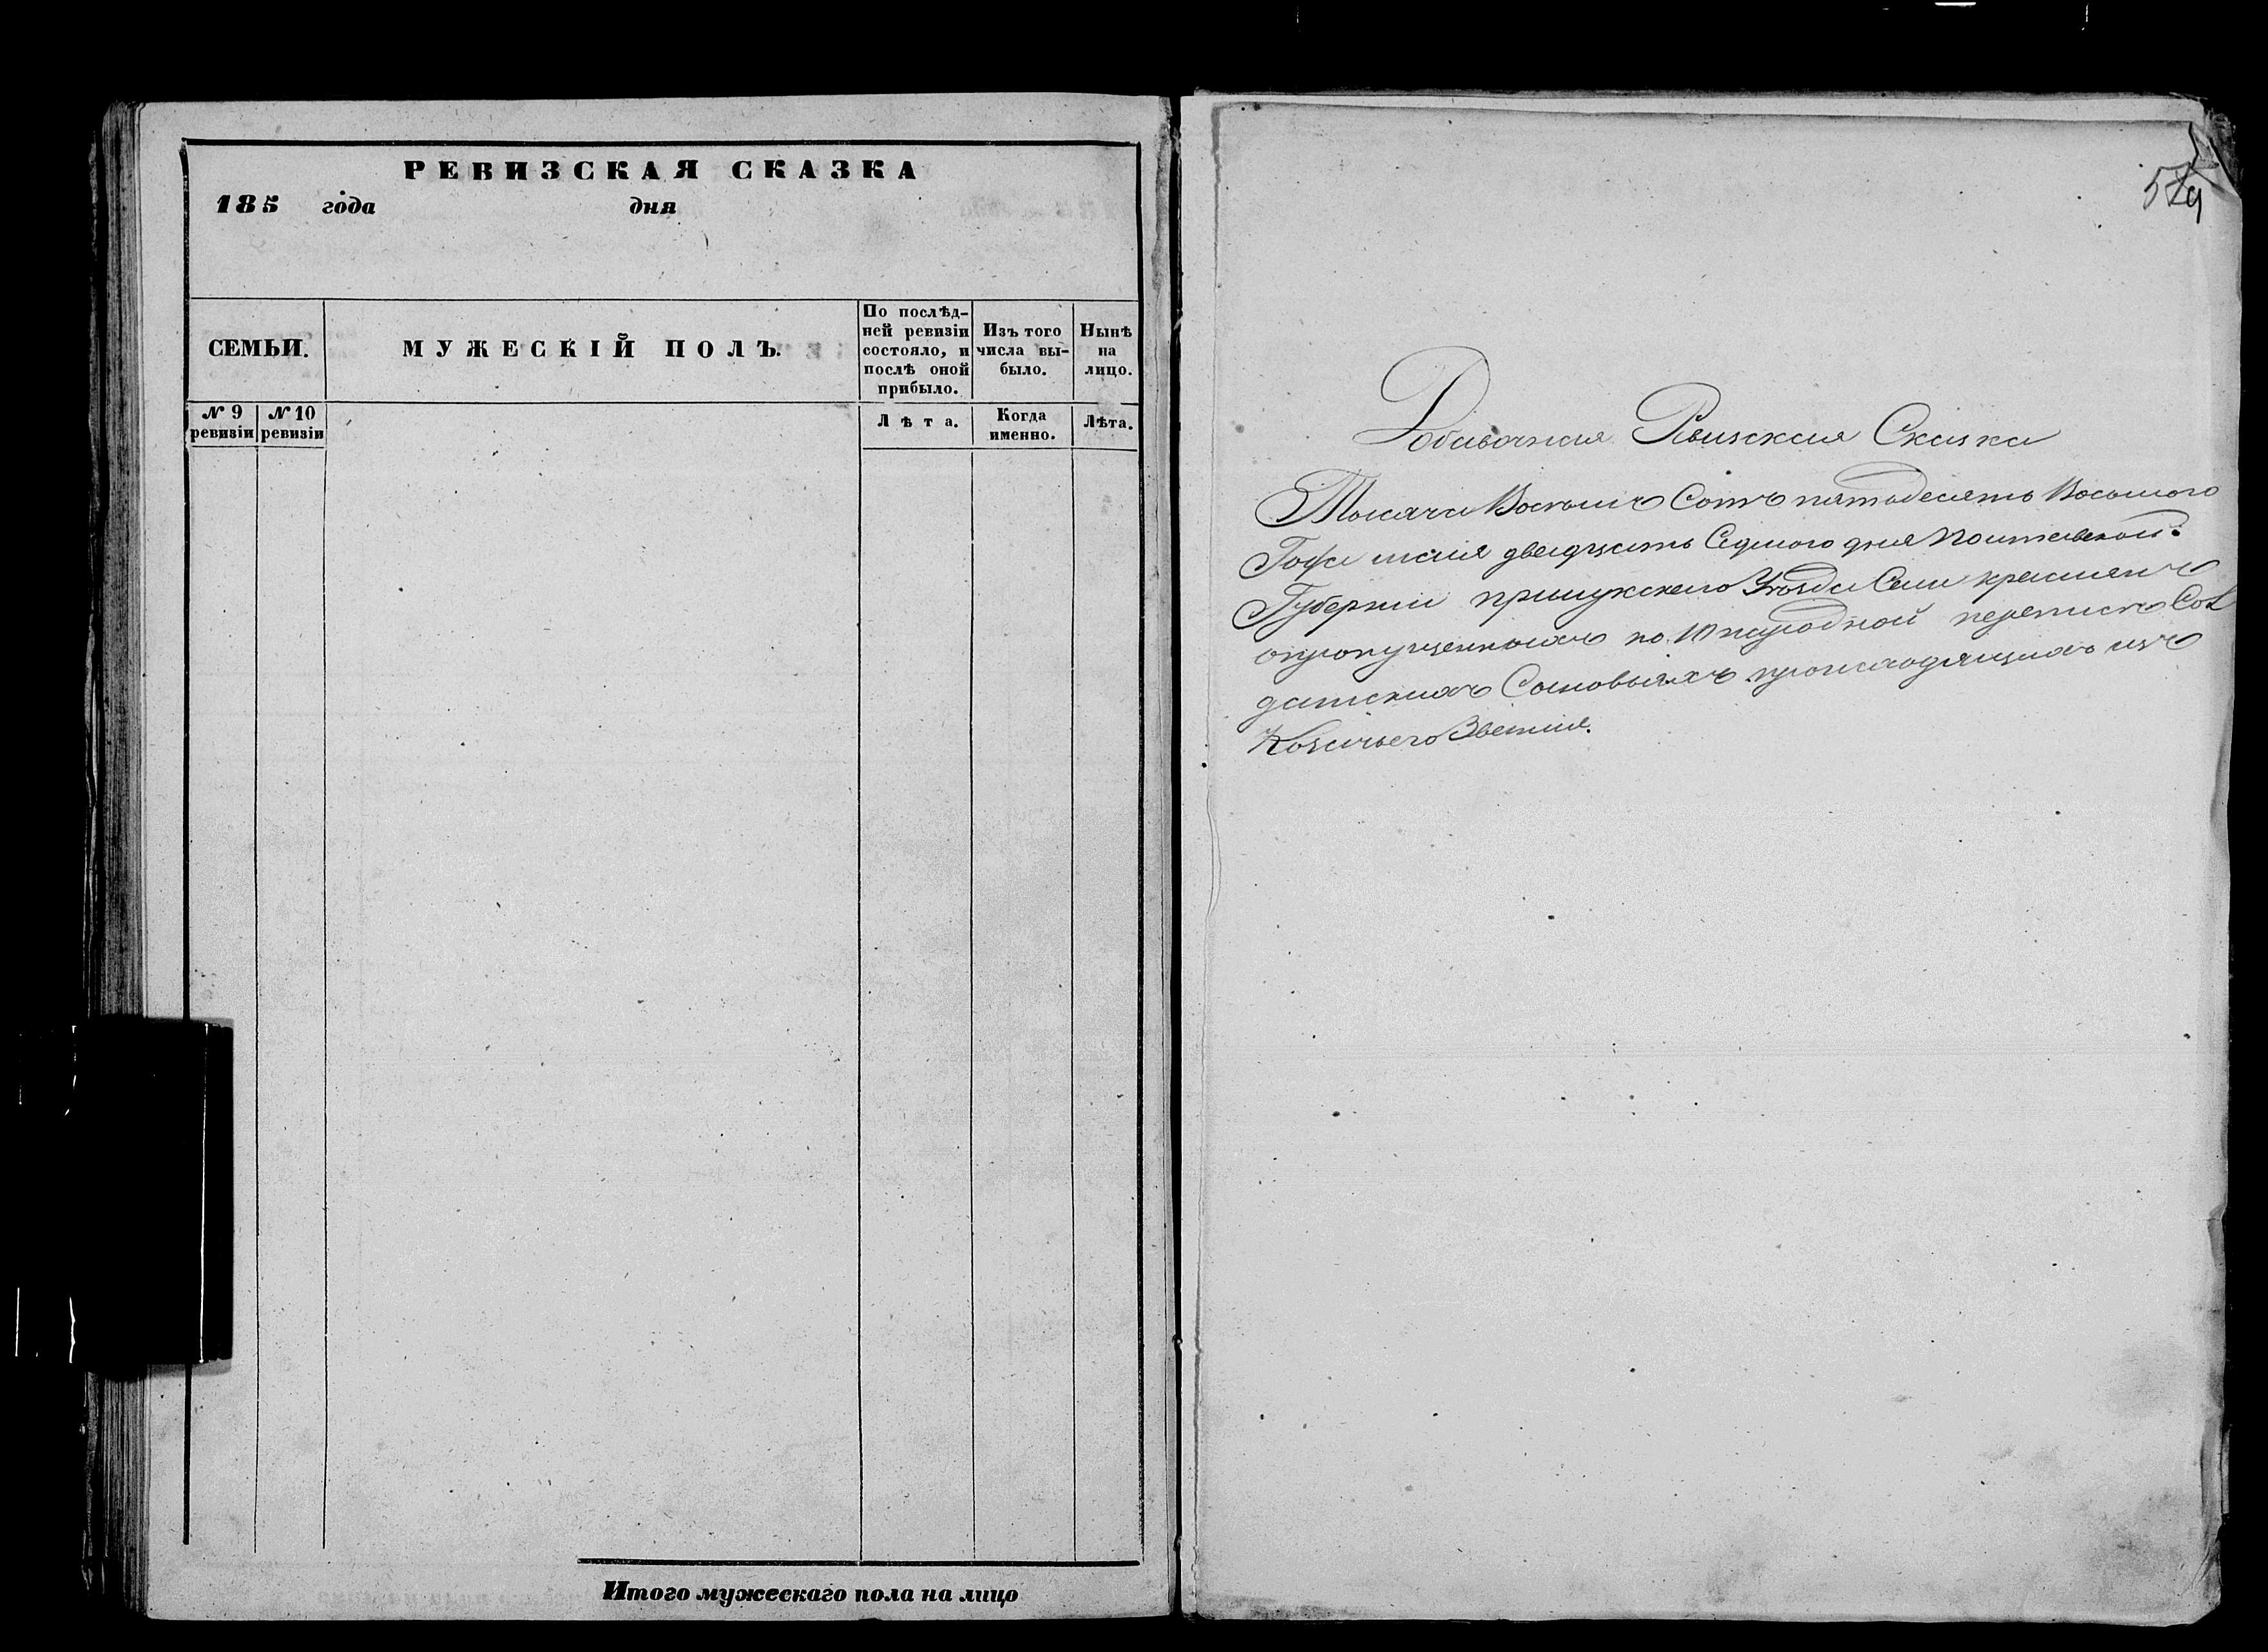 РЕВИЗСКАЯ СКАЗКА
185 года дня
СЕМЬИ.
МУЖЕСКІЙ ПОЛЪ.
По послѣд-
ней ревизіи
состояло, и
послѣ оной
прибыло.
Изъ того
числа вы-
было.
Нынѣ
на
лицо.
№ 9
ревизіи
№ 10
ревизіи
Лѣта.
Когда
именно.
Лѣта.
Итого мужескаго пола на лицо
579
Добавочная Ревизская Сказка
Тысяча Восемь Сотъ пятьдесять Восьмого
Года мая двадцать Седмого дня Полтавской
Губерніи прилукскаго Уѣзда Села
опропущенныхъ по 10 народной переписи Сол
датскихъ Сыновьяхъ происходящихъ изъ
Козачьего Званія.